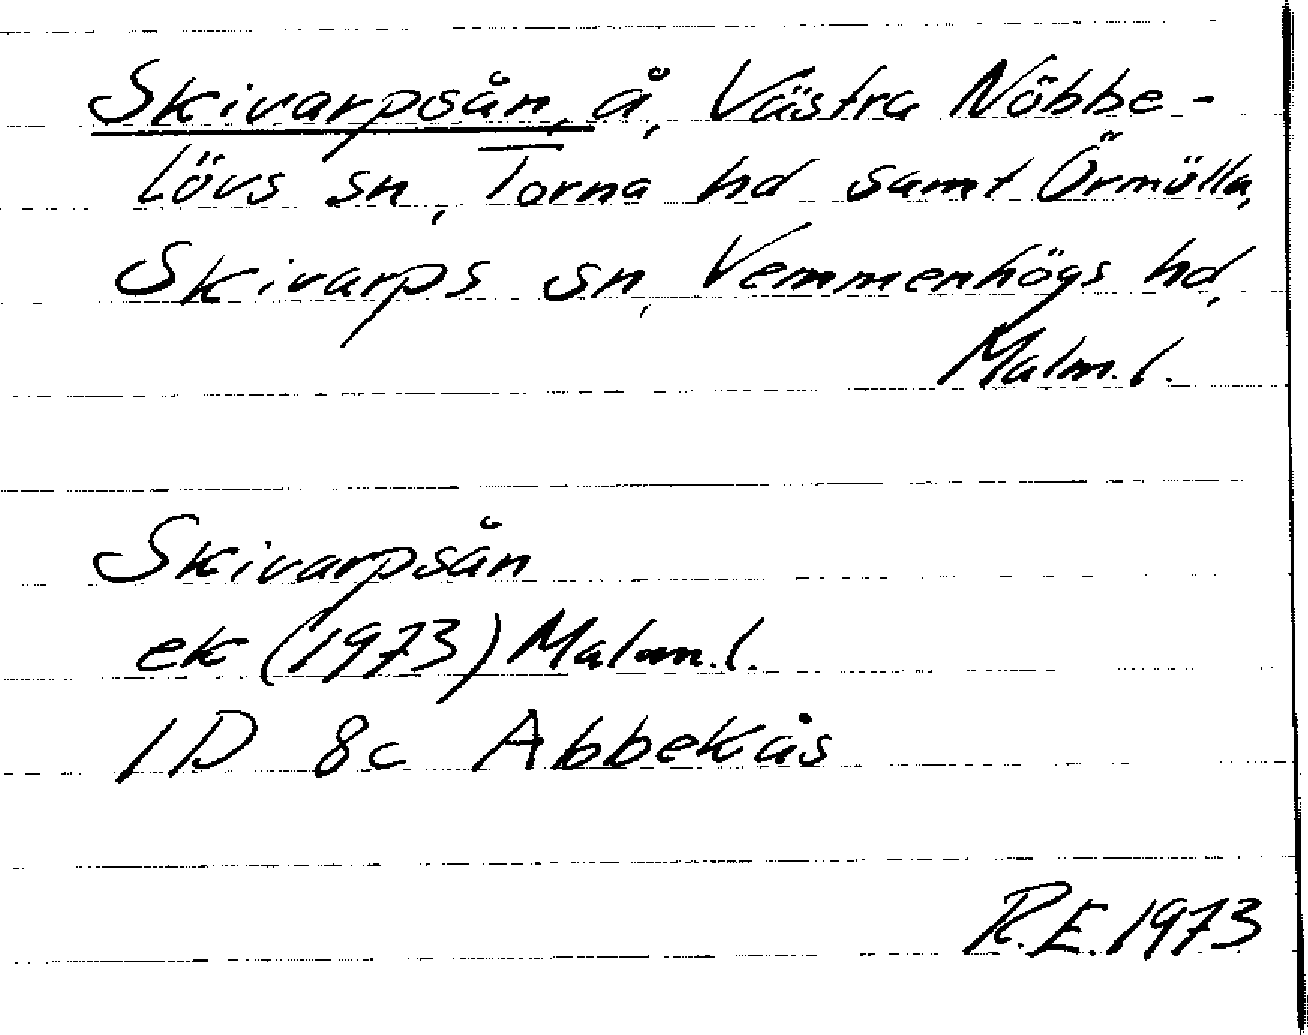 Skivarpsån, å, Västra Nöbbe-
lövs sn, Torna hd samt Örmölla,
Skivarps sn, Vemmenhögs hd,
Malm.l.
Skivarpsån
ek (1973) Malm.l.
1D 8c Abbekås
R.E. 1973